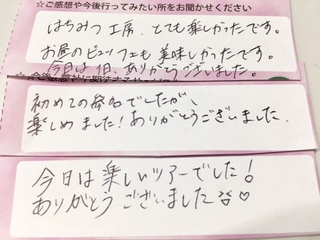 ☆ご感想や今後行ってみたい所をお聞かせください
はちみつ工房、とても楽しかったです。
お昼のビュッフェも美味しかったです。
今日は1日、ありがとうございました。
初めての参加でしたが、
楽しめました！ありがとうございました。
今日は楽しいツアーでした！
ありがとうございました♡